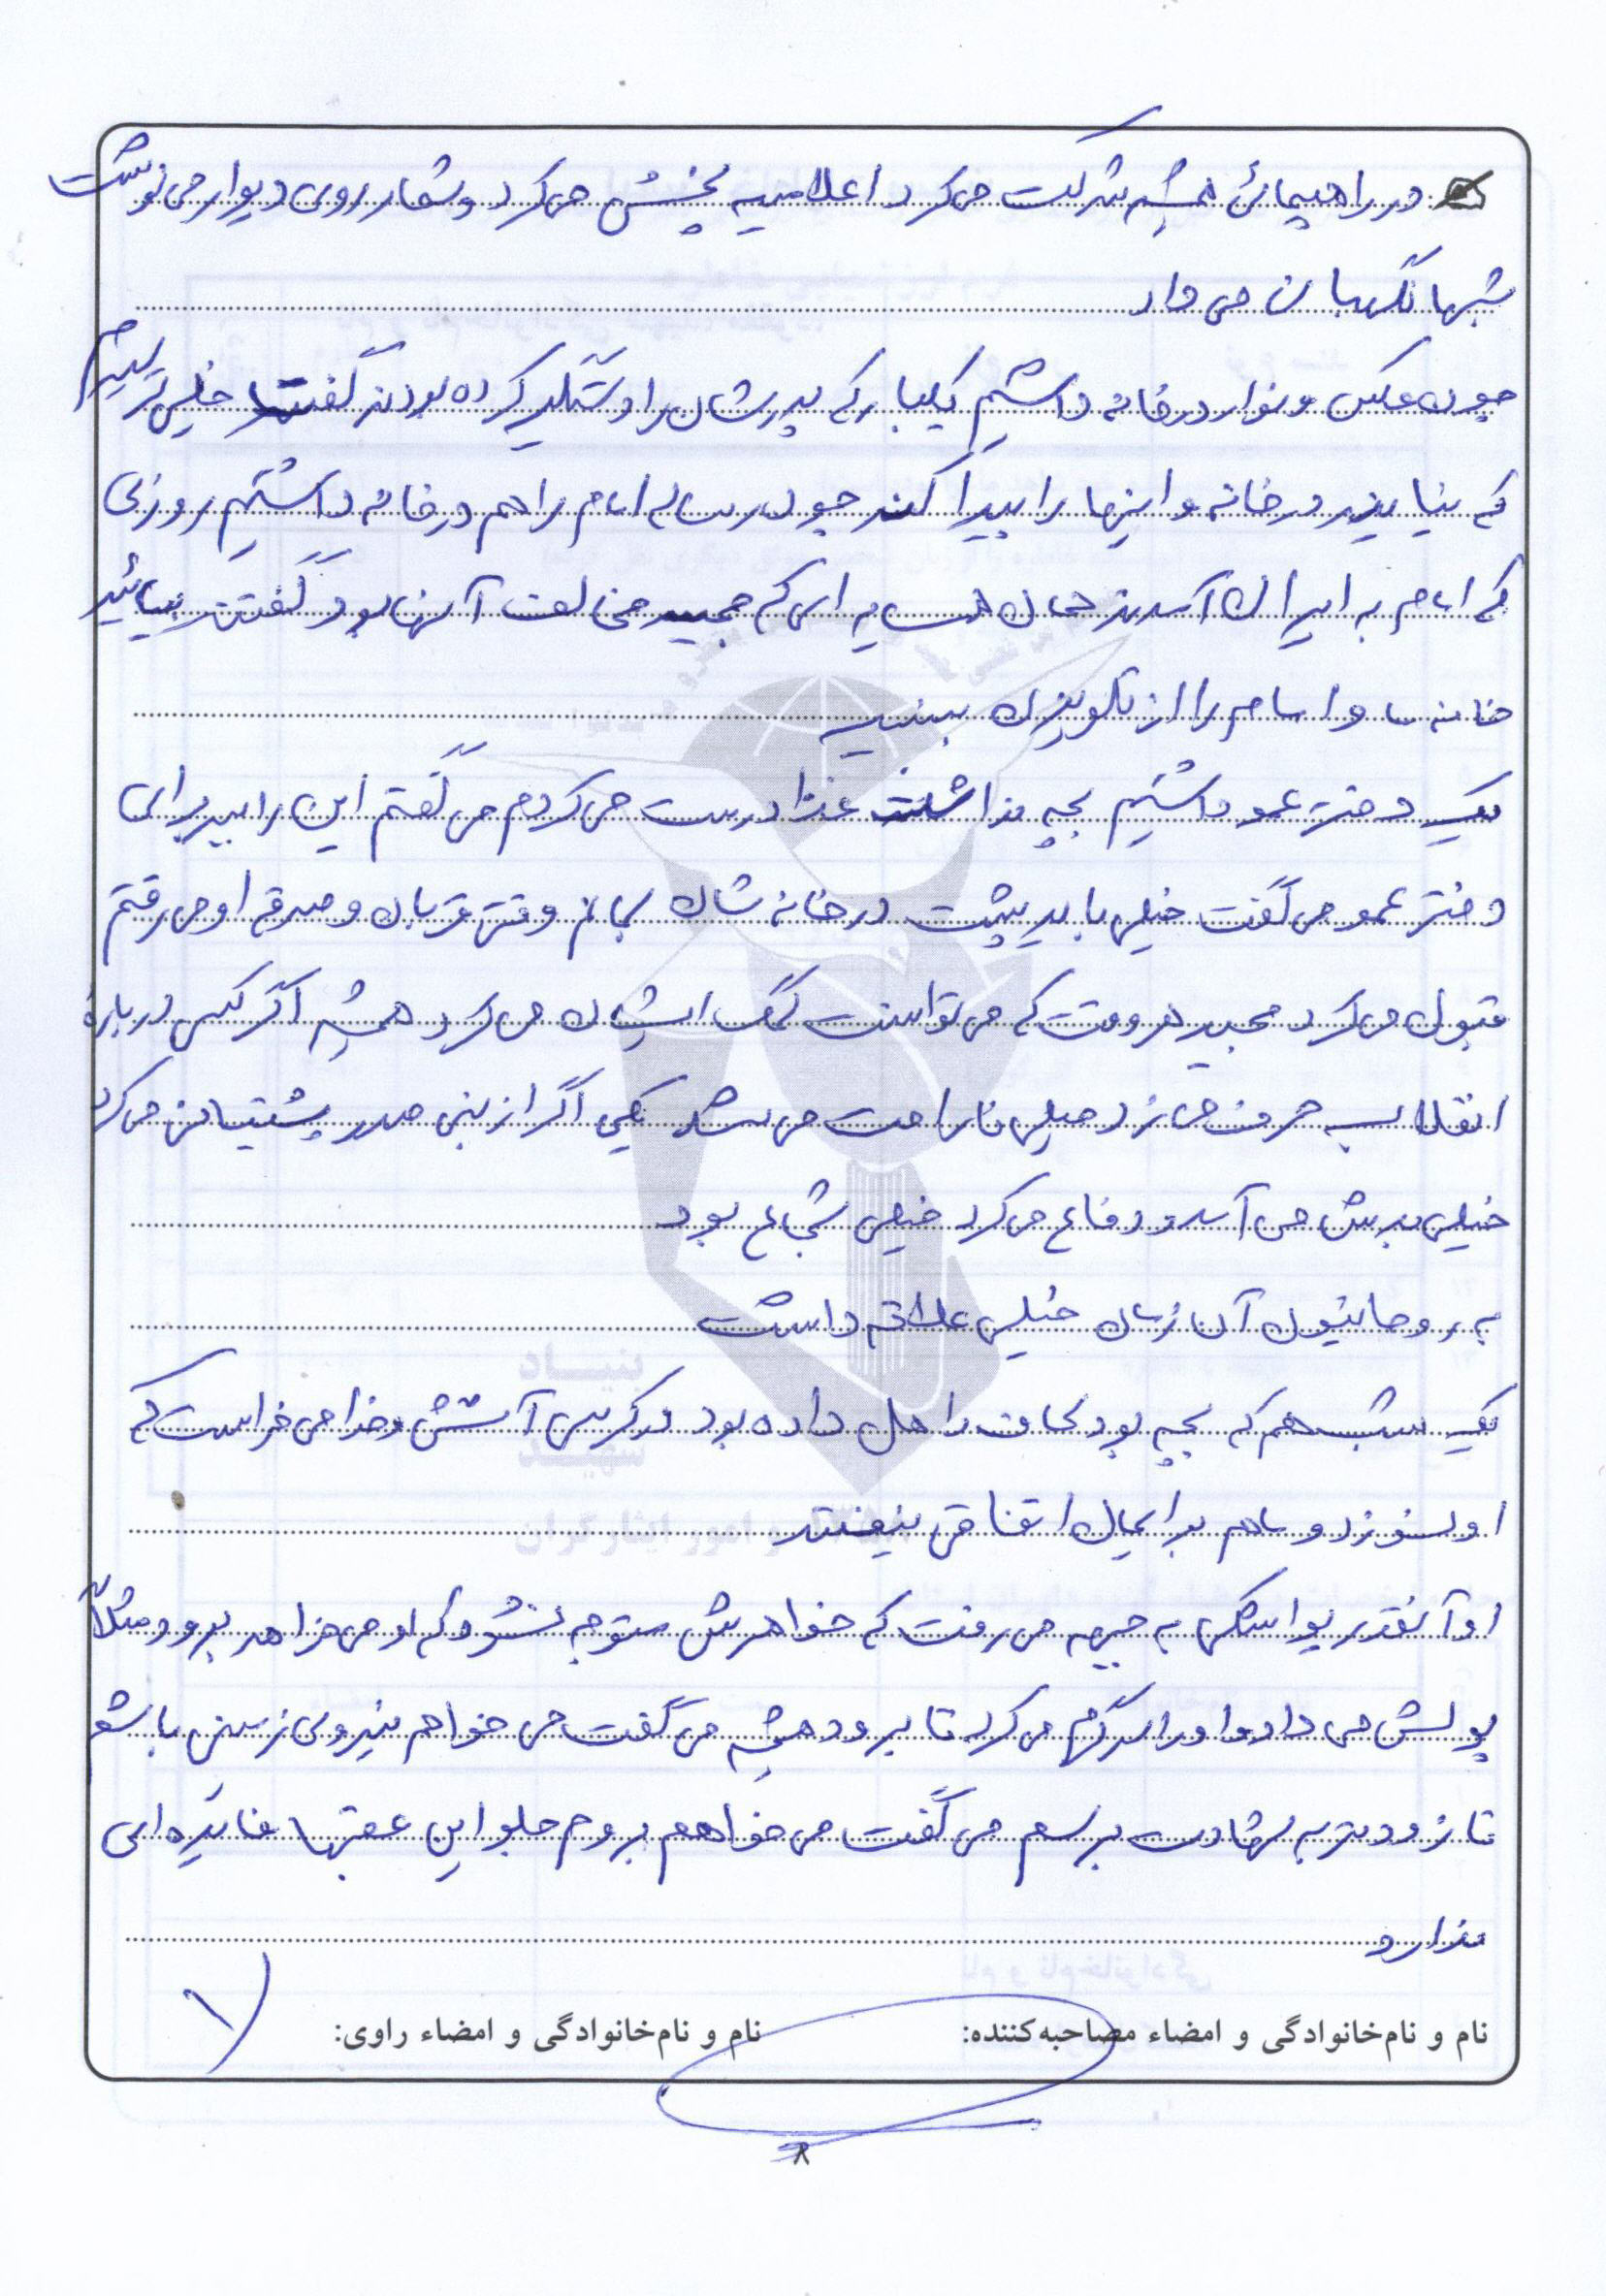 در راهپیمائی همیشه شرکت می‌کرد اعلامیه پخش می‌کرد و شعار روی دیوار می نوشت
شبها نگهبان می داد
چون عکس و نوار در خانه داشتیم یکبار که پدرشان را دستگیر کرده بودند گفت خیلی ترسیدم
که بیایند در خانه و اینها را پیدا کند چون رساله امام را هم در خانه داشتیم روزی
که امام به ایران آمدند همان همسایه ای که مجید مخالف آنها بود گفتند بیائید
خانه ما و امام را از تلویزیون ببینید
یک دختر عمو داشتیم بچه نداشت غذا درست می کردم می گفتم این را ببر برای
دختر عمو می گفت خیلی باید پشت در خانه شان بمانم وقتی قربان و صدقه او می رفتم
قبول می کرد مجید هر وقت که می توانست کمک ایشان می کرد همیشه اگر کسی درباره
انقلاب حرف می زد خیلی ناراحت می شد یکی اگر از بنی صدر پشتیبانی می کرد
خیلی بدش می آمد و دفاع می کرد خیلی شجاع بود
به روحانیون آن زمان خیلی علاقه داشت
یک شب هم که بچه بود لحاف را هل داده بود در کرسی آتش و خدا می خواست که
او نسوزد و ما هم برایمان اتفاقی نیفتد
او آنقدر یواشکی به جبهه می رفت که خواهرش متوجه نشود که او می خواهد برود مثلاً
پولش می داد و او را سرگرم می کرد تا برود همیشه می گفت می خواهم نیروی زمینی باشم
تا زودتر به شهادت برسم می گفت می خواهم بروم جلو این عقبها فایده ای
ندارد
نام و نام‌خانوادگی و امضاء مصاحبه‌کننده: نام و نام‌خانوادگی و امضاء راوی:
۸